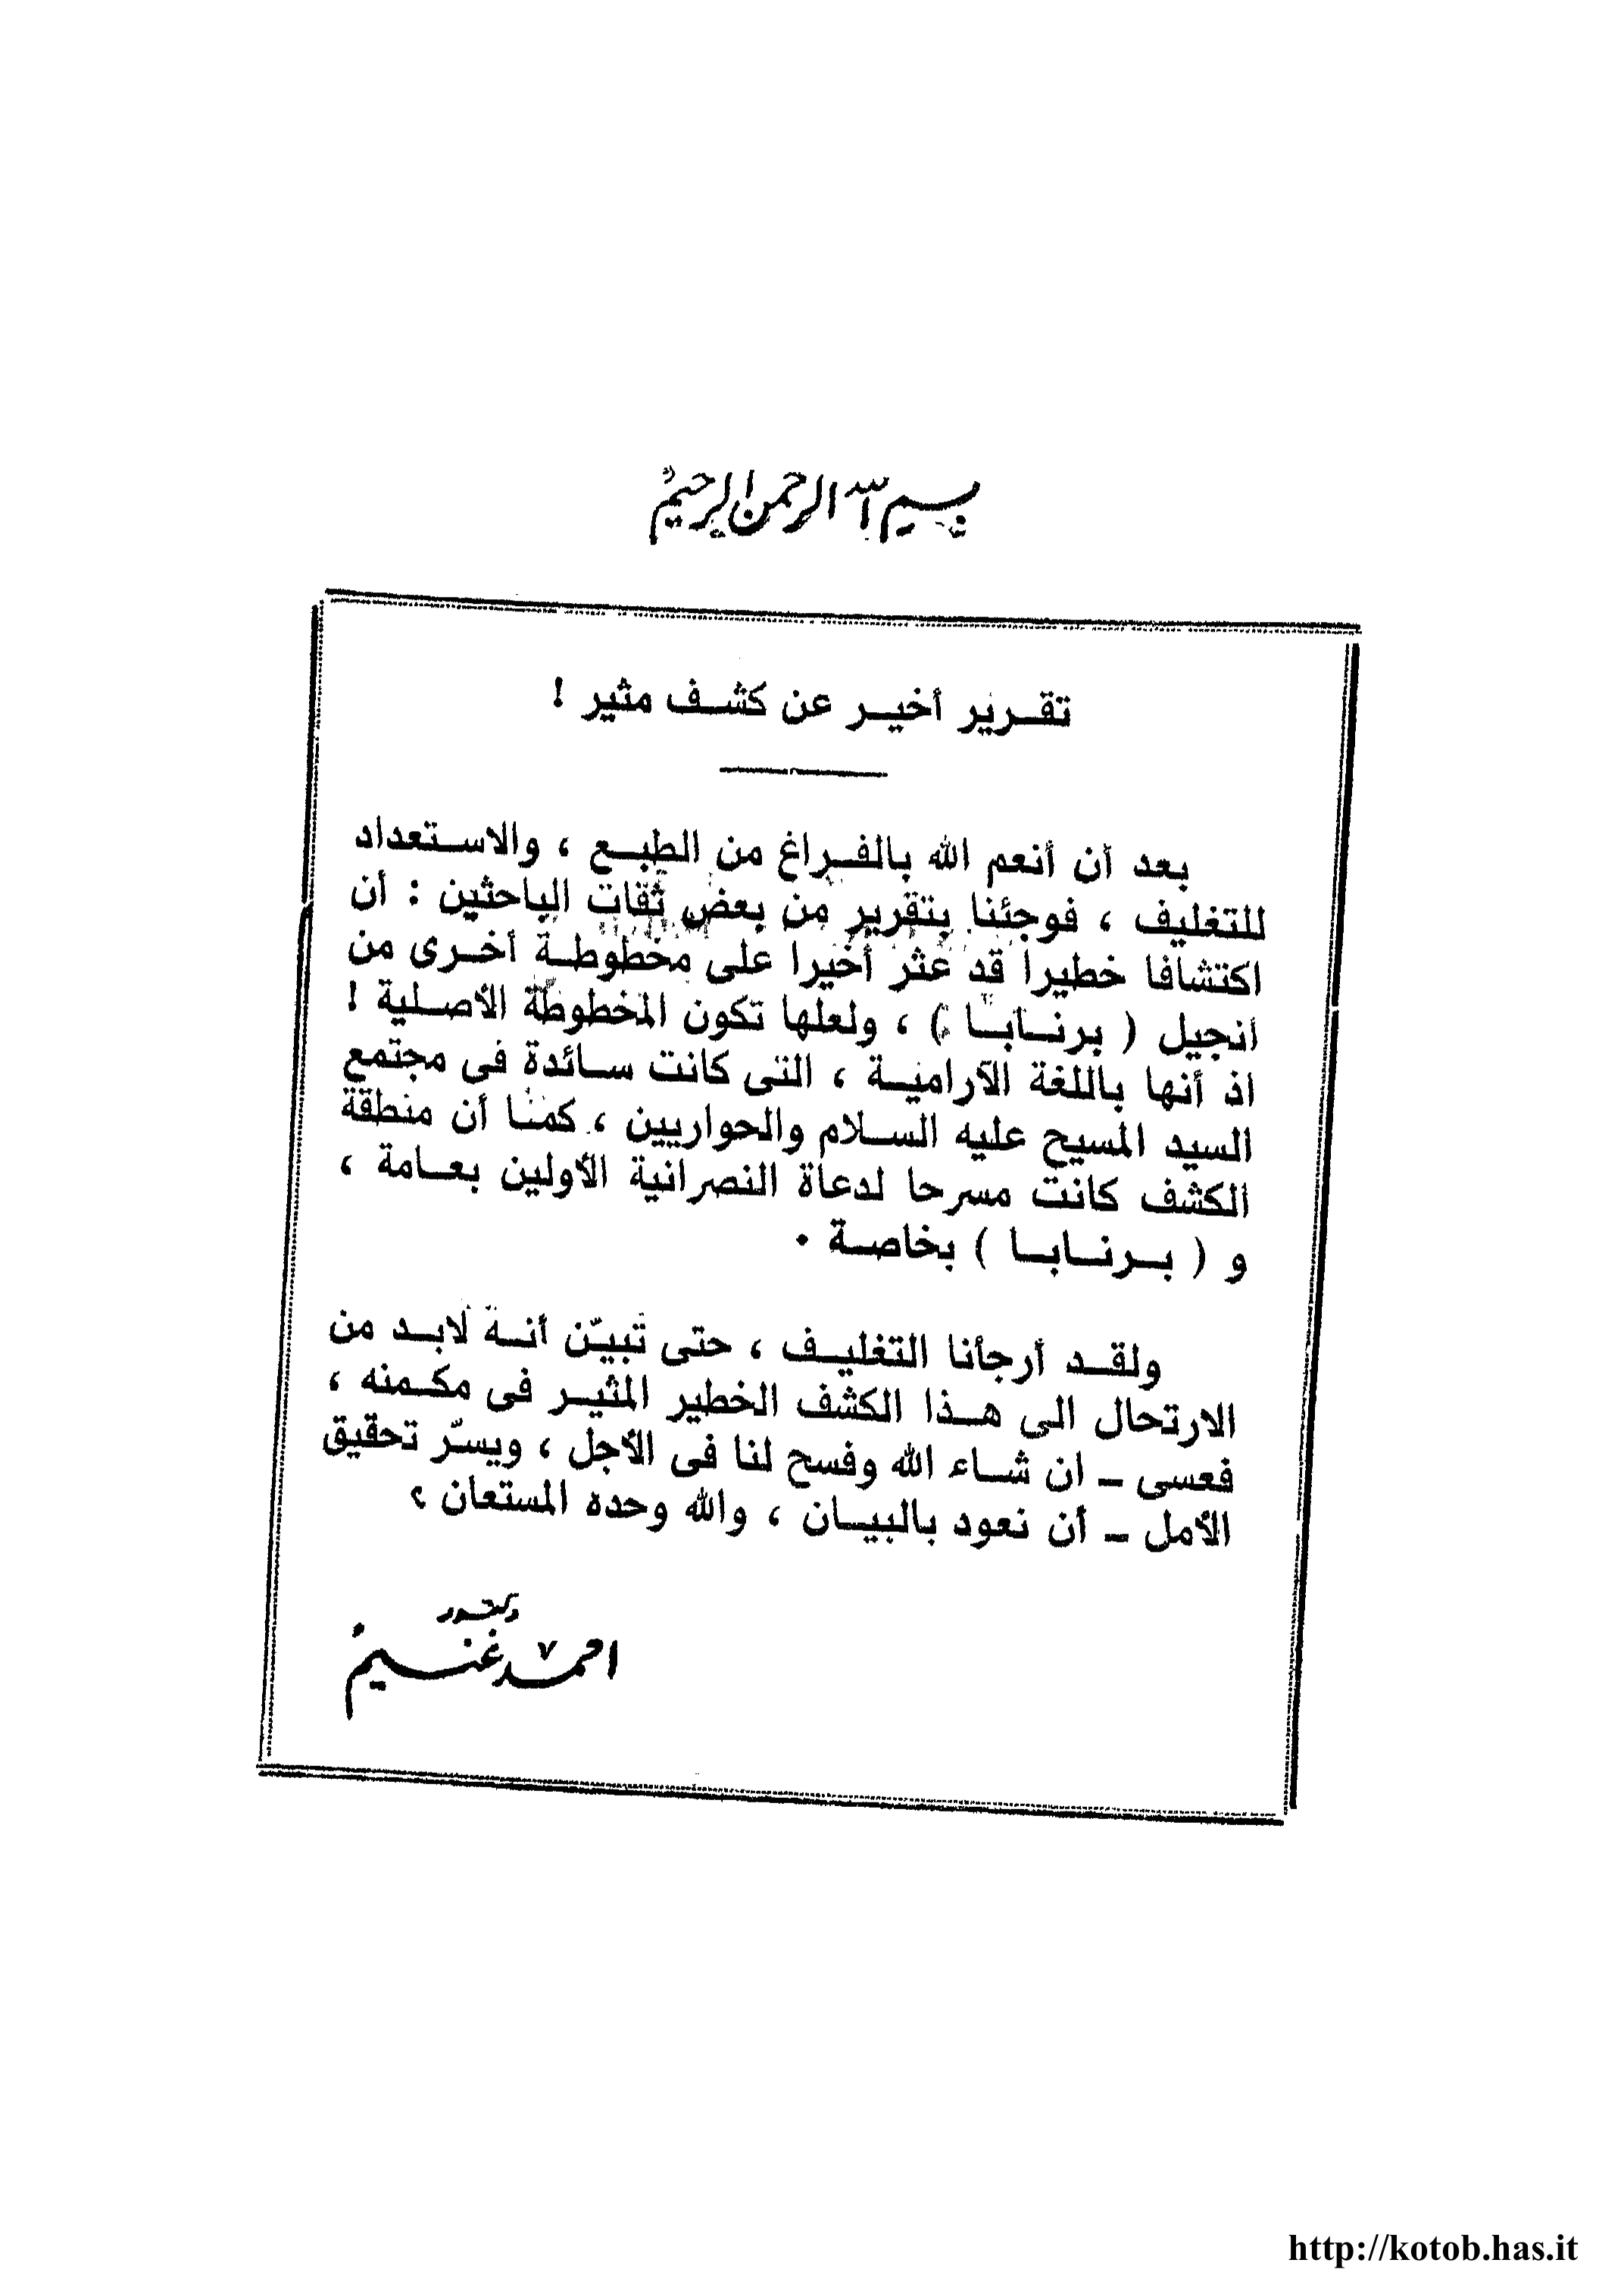 بسم الله الرحمن الرحيم
تقرير أخير عن كشف مثير !
بعد أن أنعم الله بالفراغ من الطبع ، والاستعداد
للتغليف ، فوجئنا بتقرير من بعض ثقات الباحثين : أن
اكتشافا خطيرا قد عثر أخيرا على مخطوطة أخرى من
انجيل ( برنابا ) ، ولعلها تكون المخطوطة الأصلية !
اذ أنها باللغة الآرامية ، التى كانت سائدة فى مجتمع
السيد المسيح عليه السلام والحواريين ، كما أن منطقة
الكشف كانت مسرحا لدعاة النصرانية الأولين بعامة ،
و ( برنابا ) بخاصة .
ولقد أرجأنا التغليف ، حتى تبيّن أنه لابد من
الارتحال الى هذا الكشف الخطير المثير فى مكمنه ،
فعسى – ان شاء الله وفسح لنا فى الأجل ، ويسّر تحقيق
الأمل – أن نعود بالبيان ، والله وحده المستعان ،
دكتور
احمد غنيم
http://kotob.has.it